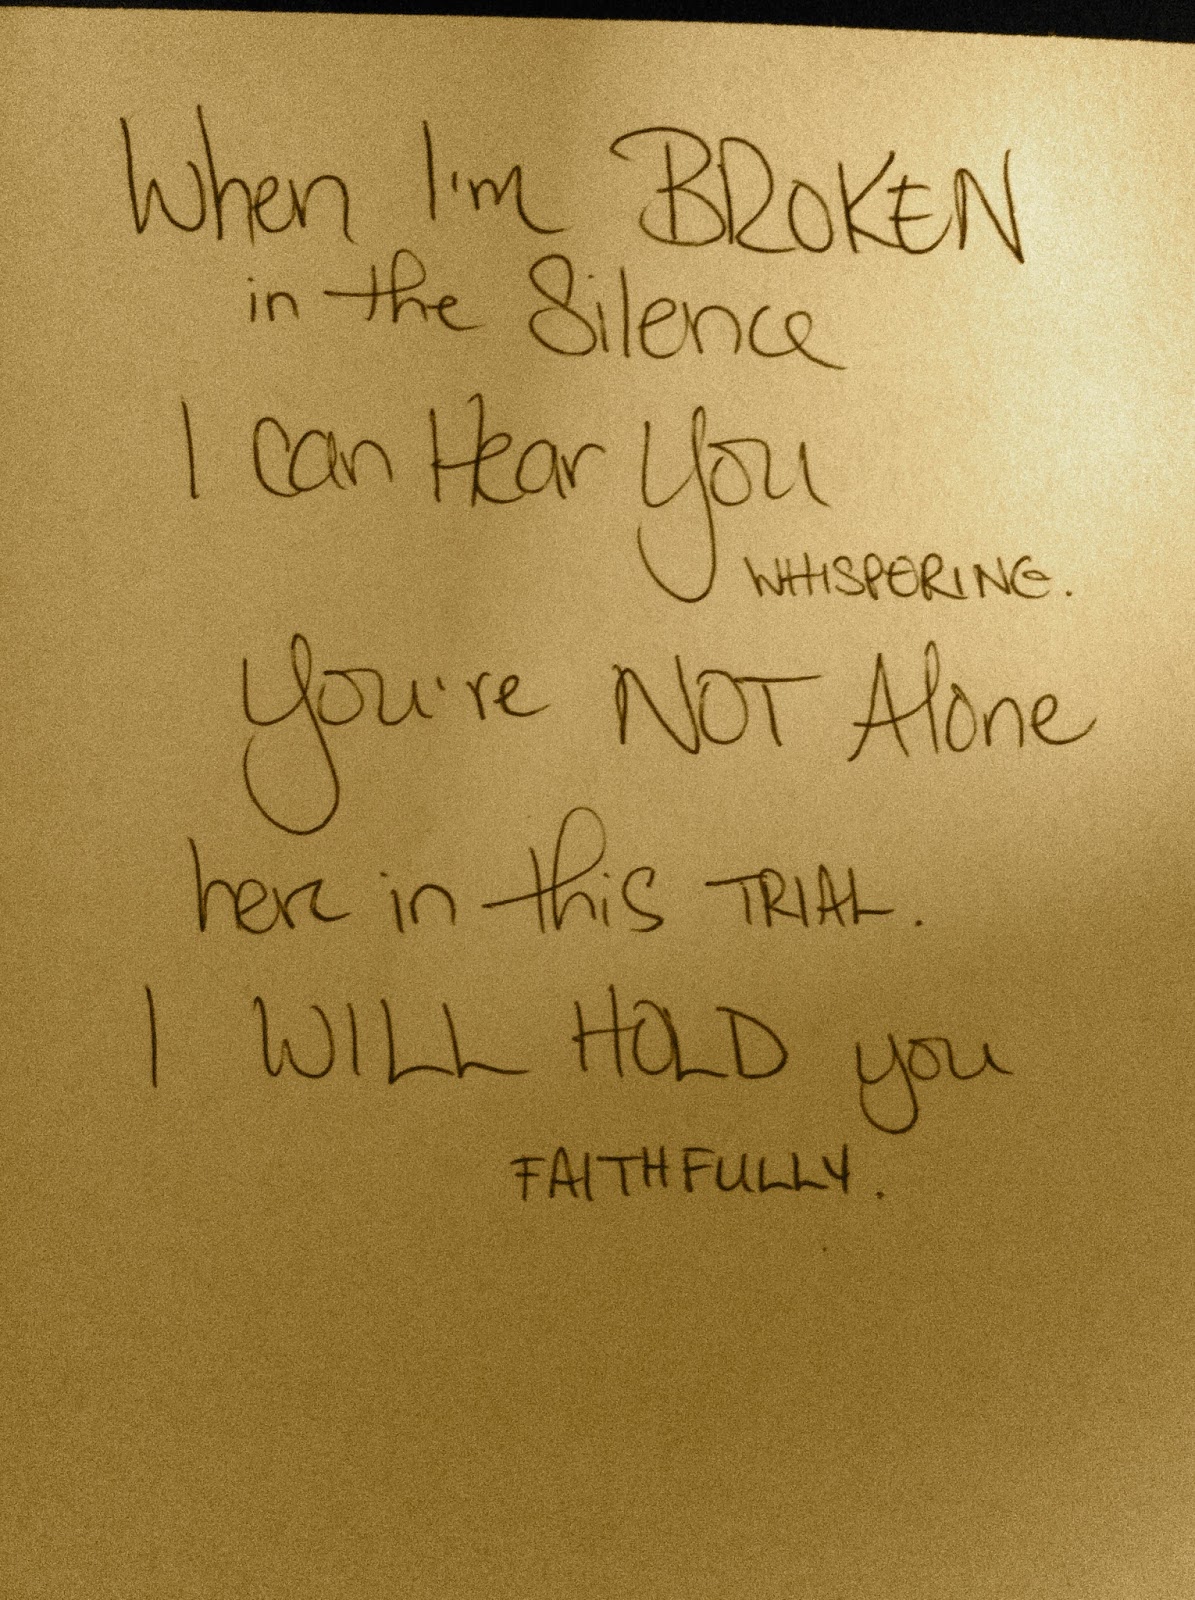 When I'm BROKEN
in the Silence
I can Hear You
WHISPERING.
You're NOT Alone
here in this TRIAL.
I WILL HOLD you
FAITHFULLY.